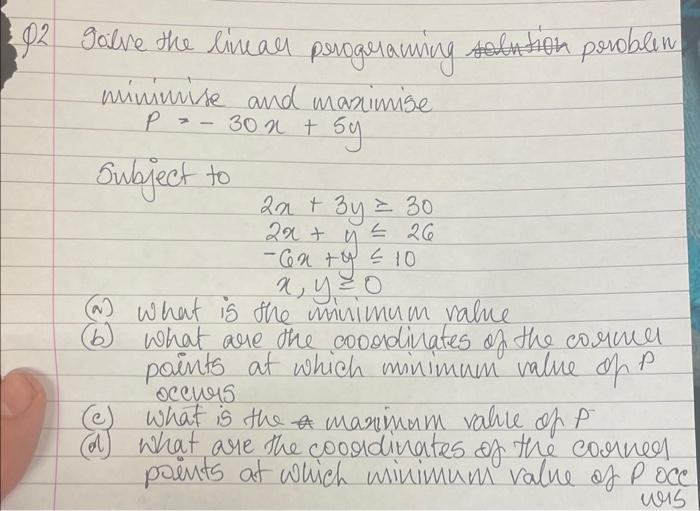 Q2 Solve the linear programming solution problem
minimise and maximise
P = - 30x + 5y
Subject to
2x + 3y ≥ 30
2x + y ≤ 26
-6x + y ≤ 10
x, y ≥ 0
(a) what is the minimum value
(b) what are the coordinates of the corner
points at which minimum value of P
occurs
(c) what is the maximum value of P
(d) what are the coordinates of the corner
points at which minimum value of P occ
urs